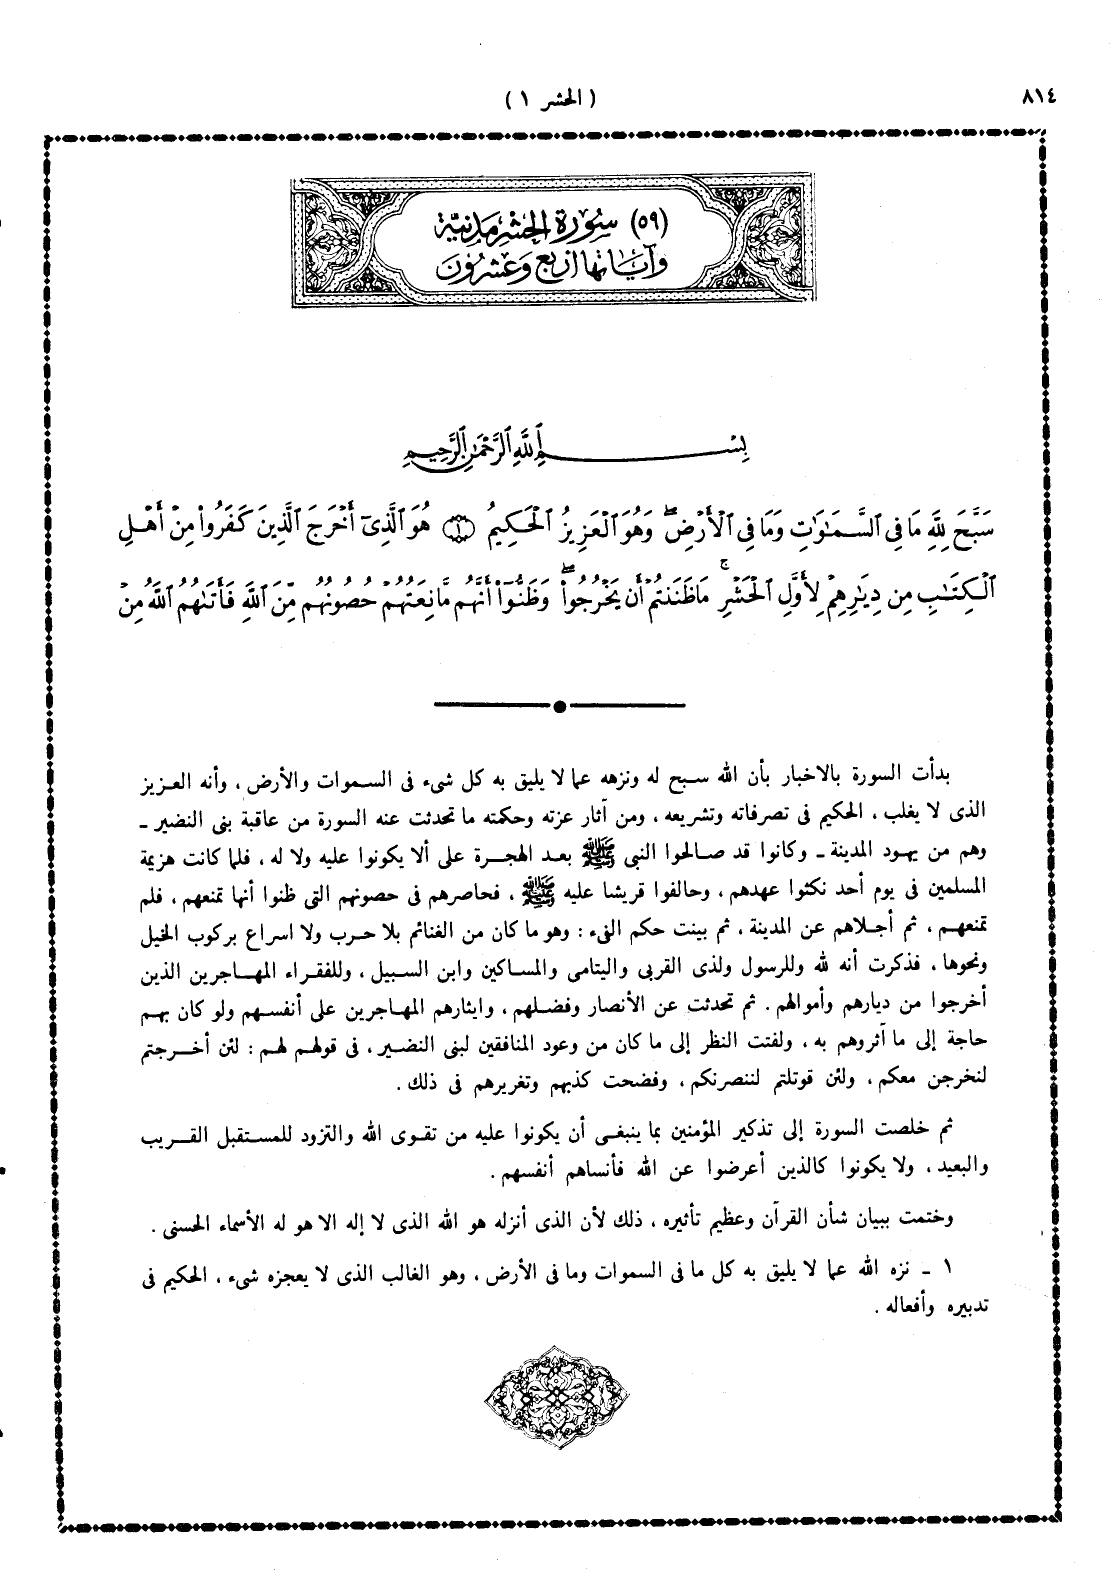 ٨١٤
( الحشر ١ )
(٥٩) سورة الحشر مدنية
وآياتها أربع وعشرون
بِسْمِ ٱللَّهِ ٱلرَّحْمَٰنِ ٱلرَّحِيمِ
سَبَّحَ لِلَّهِ مَا فِى ٱلسَّمَٰوَٰتِ وَمَا فِى ٱلْأَرْضِ ۖ وَهُوَ ٱلْعَزِيزُ ٱلْحَكِيمُ ﴿١﴾ هُوَ ٱلَّذِىٓ أَخْرَجَ ٱلَّذِينَ كَفَرُوا۟ مِنْ أَهْلِ
ٱلْكِتَٰبِ مِن دِيَٰرِهِمْ لِأَوَّلِ ٱلْحَشْرِ ۚ مَا ظَنَنتُمْ أَن يَخْرُجُوا۟ ۖ وَظَنُّوٓا۟ أَنَّهُم مَّانِعَتُهُمْ حُصُونُهُم مِّنَ ٱللَّهِ فَأَتَىٰهُمُ ٱللَّهُ مِنْ
بدأت السورة بالاخبار بأن الله سبح له ونزهه عما لا يليق به كل شىء فى السموات والأرض ، وأنه العزيز
الذى لا يغلب ، الحكيم فى تصرفاته وتشريعه ، ومن آثار عزته وحكمته ما تحدثت عنه السورة من عاقبة بنى النضير ـ
وهم من يهود المدينة ـ وكانوا قد صالحوا النبى ﷺ بعد الهجرة على ألا يكونوا عليه ولا له ، فلما كانت هزيمة
المسلمين فى يوم أحد نكثوا عهدهم ، وحالفوا قريشا عليه ﷺ ، فحاصرهم فى حصونهم التى ظنوا أنها تمنعهم ، فلم
تمنعهم ، ثم أجلاهم عن المدينة ، ثم بينت حكم الفىء : وهو ما كان من الغنائم بلا حرب ولا اسراع بركوب الخيل
ونحوها ، فذكرت أنه لله وللرسول ولذى القربى واليتامى والمساكين وابن السبيل ، وللفقراء المهاجرين الذين
أخرجوا من ديارهم وأموالهم . ثم تحدثت عن الأنصار وفضلهم ، وايثارهم المهاجرين على أنفسهم ولو كان بهم
حاجة إلى ما آثروهم به ، ولفتت النظر إلى ما كان من وعود المنافقين لبنى النضير ، فى قولهم لهم : لئن أخرجتم
لنخرجن معكم ، ولئن قوتلتم لننصرنكم ، وفضحت كذبهم وتغريرهم فى ذلك .
ثم خلصت السورة إلى تذكير المؤمنين بما ينبغى أن يكونوا عليه من تقوى الله والتزود للمستقبل القريب
والبعيد ، ولا يكونوا كالذين أعرضوا عن الله فأنساهم أنفسهم .
وختمت ببيان شأن القرآن وعظيم تأثيره ، ذلك لأن الذى أنزله هو الله الذى لا إله الا هو له الأسماء الحسنى .
١ ـ نزه الله عما لا يليق به كل ما فى السموات وما فى الأرض ، وهو الغالب الذى لا يعجزه شىء ، الحكيم فى
تدبيره وأفعاله .